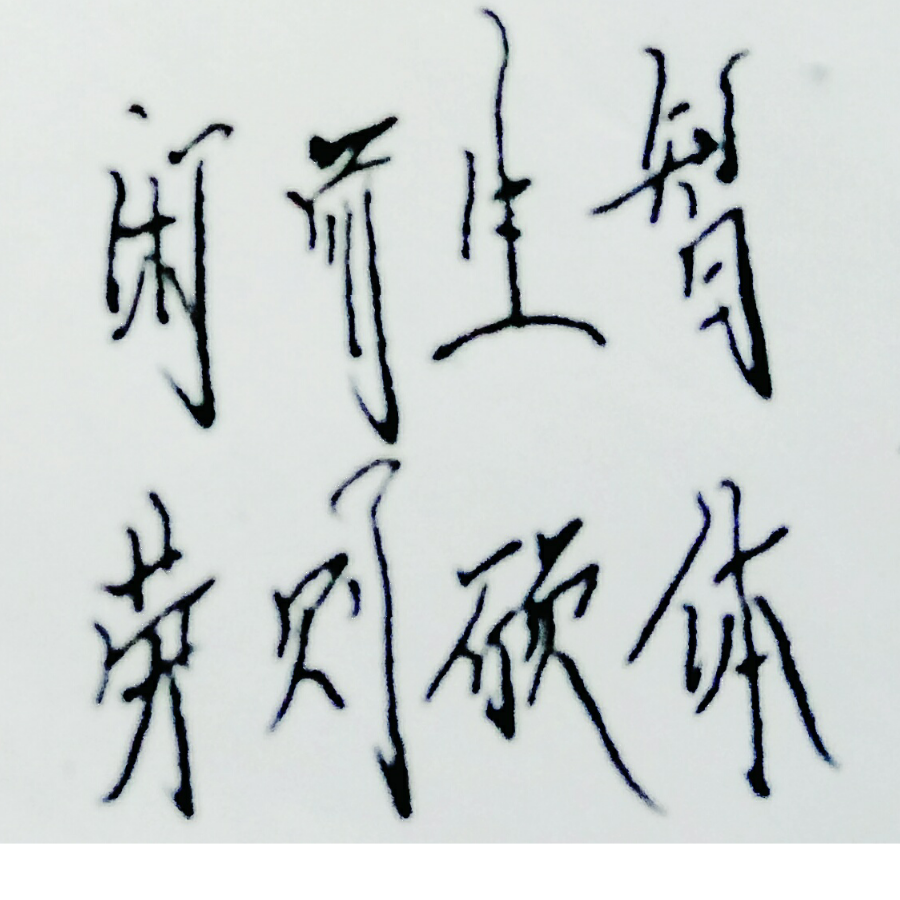 闲而生智
劳则硕体